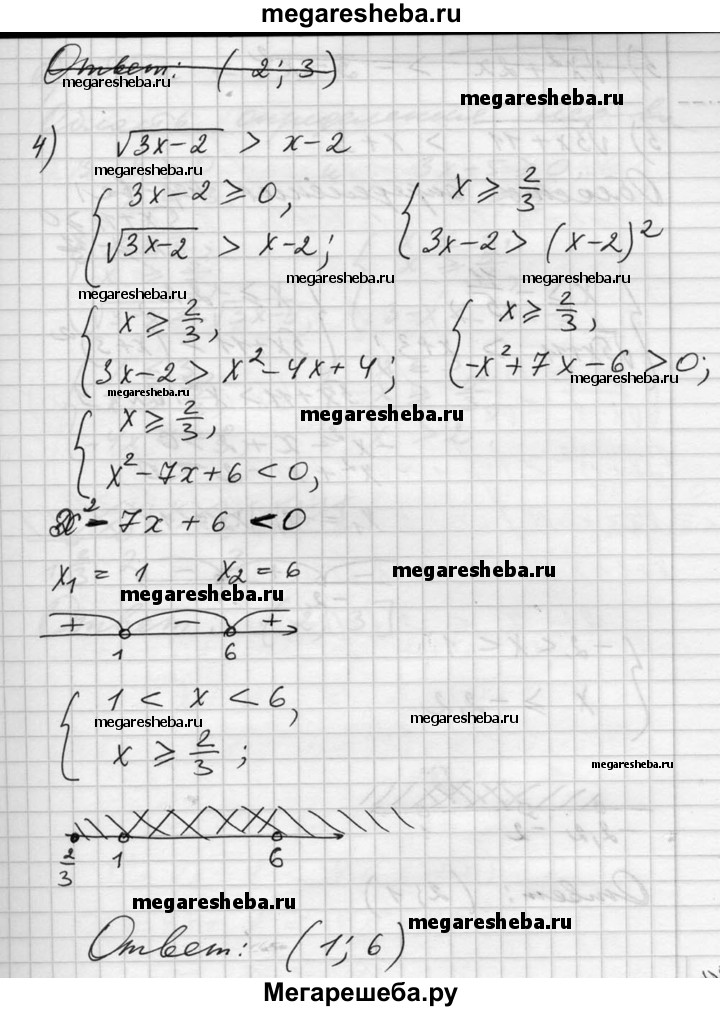 megaresheba.ru
Ответ: (2; 3)
megaresheba.ru
megaresheba.ru
4) √3x-2 > x-2
megaresheba.ru
{ 3x-2 ⩾ 0, { x ⩾ 2/3
√3x-2 > x-2; 3x-2 > (x-2)²
megaresheba.ru megaresheba.ru
megaresheba.ru
{ x ⩾ 2/3, { x ⩾ 2/3,
3x-2 > x²-4x+4; -x²+7x-6 > 0;
megaresheba.ru
megaresheba.ru
megaresheba.ru
{ x ⩾ 2/3,
x²-7x+6 < 0,
x²-7x+6 < 0
x₁ = 1 x₂ = 6
megaresheba.ru
megaresheba.ru
+ - +
1 6
{ 1 < x < 6,
megaresheba.ru megaresheba.ru
x ⩾ 2/3;
megaresheba.ru
2/3 1 6
megaresheba.ru
megaresheba.ru
Ответ: (1; 6)
Мегарешеба.ру